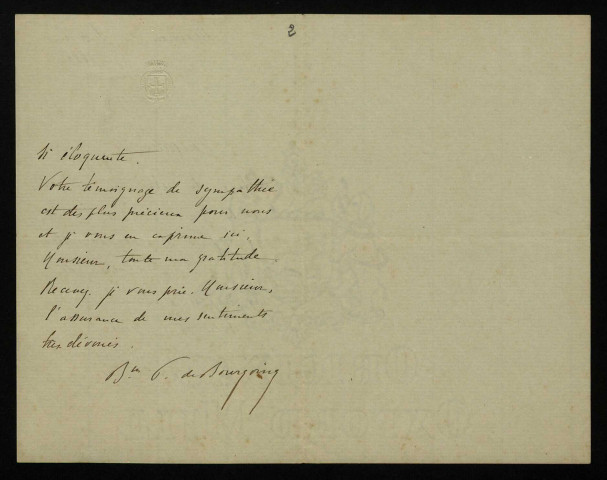 2
si éloquente.
Votre témoignage de sympathie
est des plus précieux pour nous
et je vous en exprime ici,
Monsieur, toute ma gratitude.
Recevez je vous prie, Monsieur,
l'assurance de mes sentiments
très dévoués.
Bon P. de Bourgoing